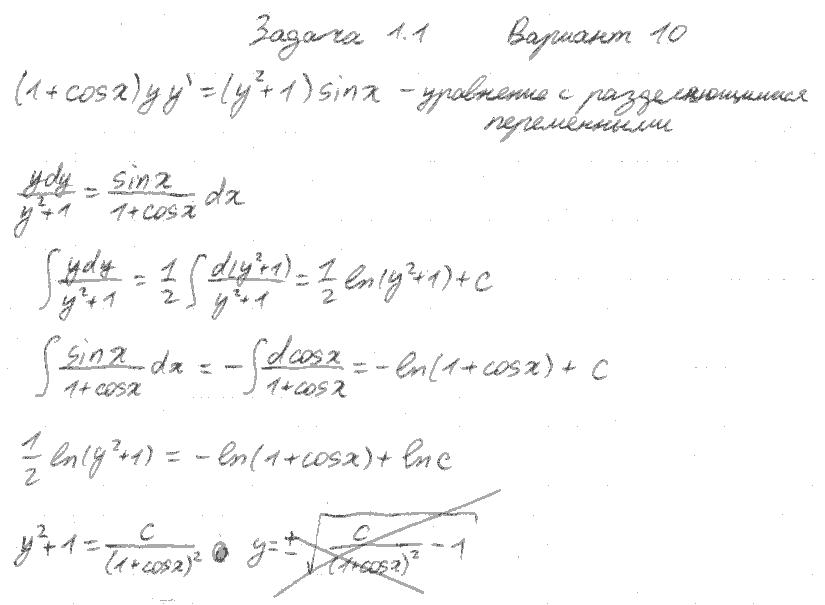 Задача 1.1 Вариант 10
(1+cosx)yy' = (y²+1)sinx – уравнение с разделяющимися
переменными
ydy/(y²+1) = sinx/(1+cosx) dx
∫ ydy/(y²+1) = 1/2 ∫ d(y²+1)/(y²+1) = 1/2 ln(y²+1) + c
∫ sinx/(1+cosx) dx = -∫ dcosx/(1+cosx) = -ln(1+cosx) + c
1/2 ln(y²+1) = -ln(1+cosx) + lnc
y²+1 = c/(1+cosx)² y = ±√(c/(1+cosx)² - 1)